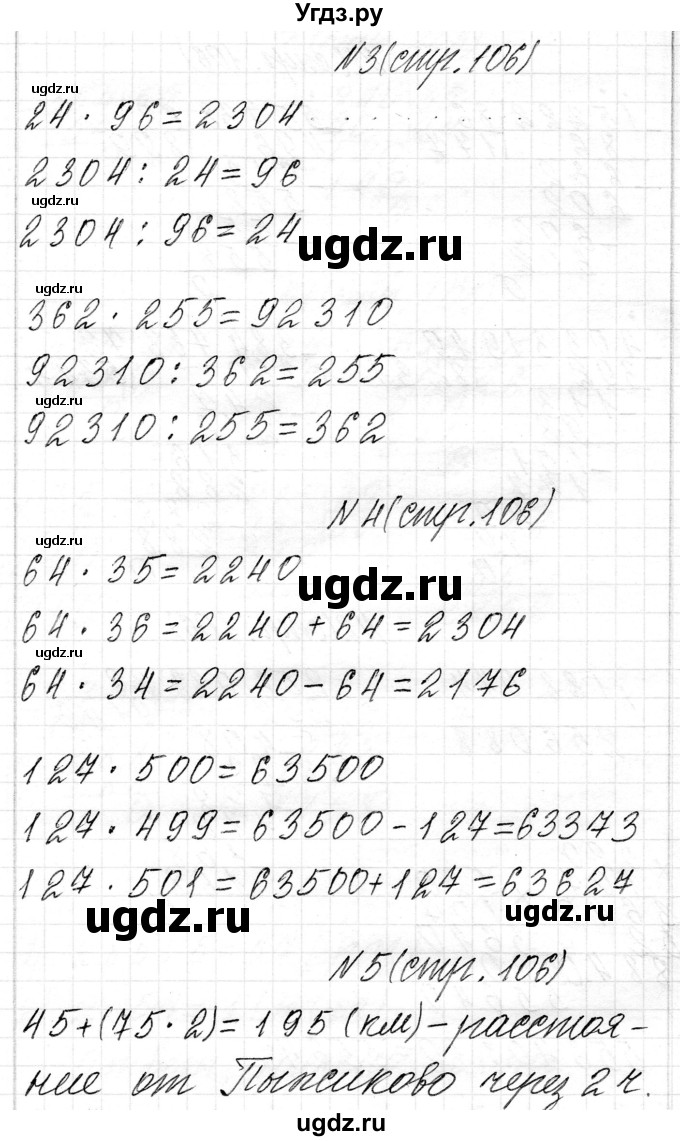 Угдз.ру
N3(стр.106)
ugdz.ru
24 · 96 = 2304
2304 : 24 = 96
ugdz.ru
2304 : 96 = 24
ugdz.ru
ugdz.ru
362 · 255 = 92310
92310 : 362 = 255
ugdz.ru
92310 : 255 = 362
N4(стр.106)
ugdz.ru
64 · 35 = 2240
ugdz.ru
64 · 36 = 2240 + 64 = 2304
ugdz.ru
64 · 34 = 2240 - 64 = 2176
127 · 500 = 63500
127 · 499 = 63500 - 127 = 63373
127 · 501 = 63500 + 127 = 63627
ugdz.ru
ugdz.ru
N5(стр.106)
45 + (75 · 2) = 195 (км) - расстоя-
ние от Пыжиково через 2 ч.
ugdz.ru